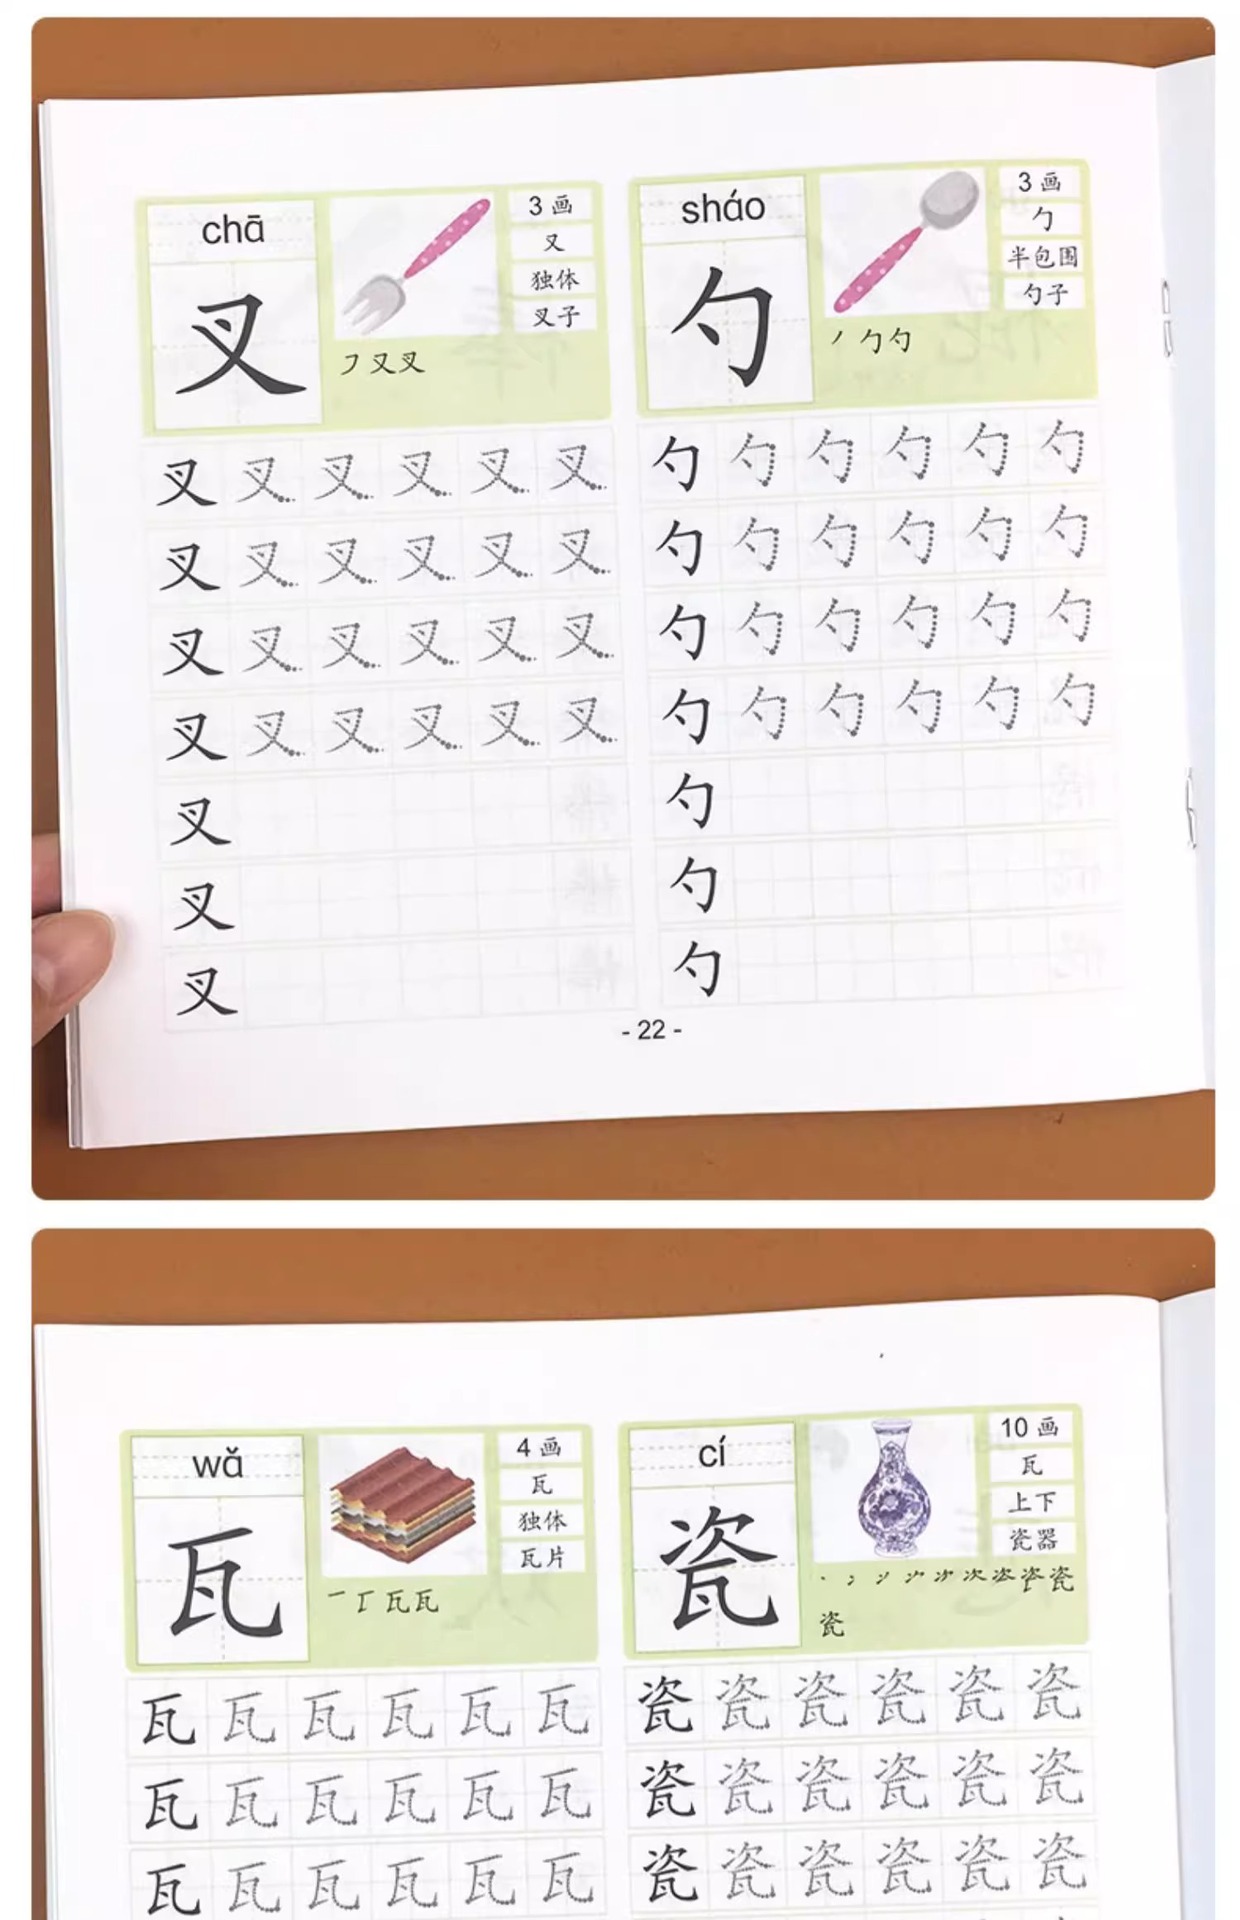 chā
叉
3 画
又
独体
叉子
㇇ 又 叉
叉 叉 叉 叉 叉 叉
叉 叉 叉 叉 叉 叉
叉 叉 叉 叉 叉 叉
叉 叉 叉 叉 叉 叉
叉
叉
叉
sháo
勺
3 画
勹
半包围
勺子
丿 勹 勺
勺 勺 勺 勺 勺 勺
勺 勺 勺 勺 勺 勺
勺 勺 勺 勺 勺 勺
勺 勺 勺 勺 勺 勺
勺
勺
勺
- 22 -
wǎ
瓦
4 画
瓦
独体
瓦片
瓦 瓦 瓦 瓦 瓦 瓦
瓦 瓦 瓦 瓦 瓦 瓦
瓦 瓦 瓦 瓦 瓦 瓦
cí
瓷
10 画
瓦
上下
瓷器
瓷
瓷 瓷 瓷 瓷 瓷 瓷
瓷 瓷 瓷 瓷 瓷 瓷
瓷 瓷 瓷 瓷 瓷 瓷